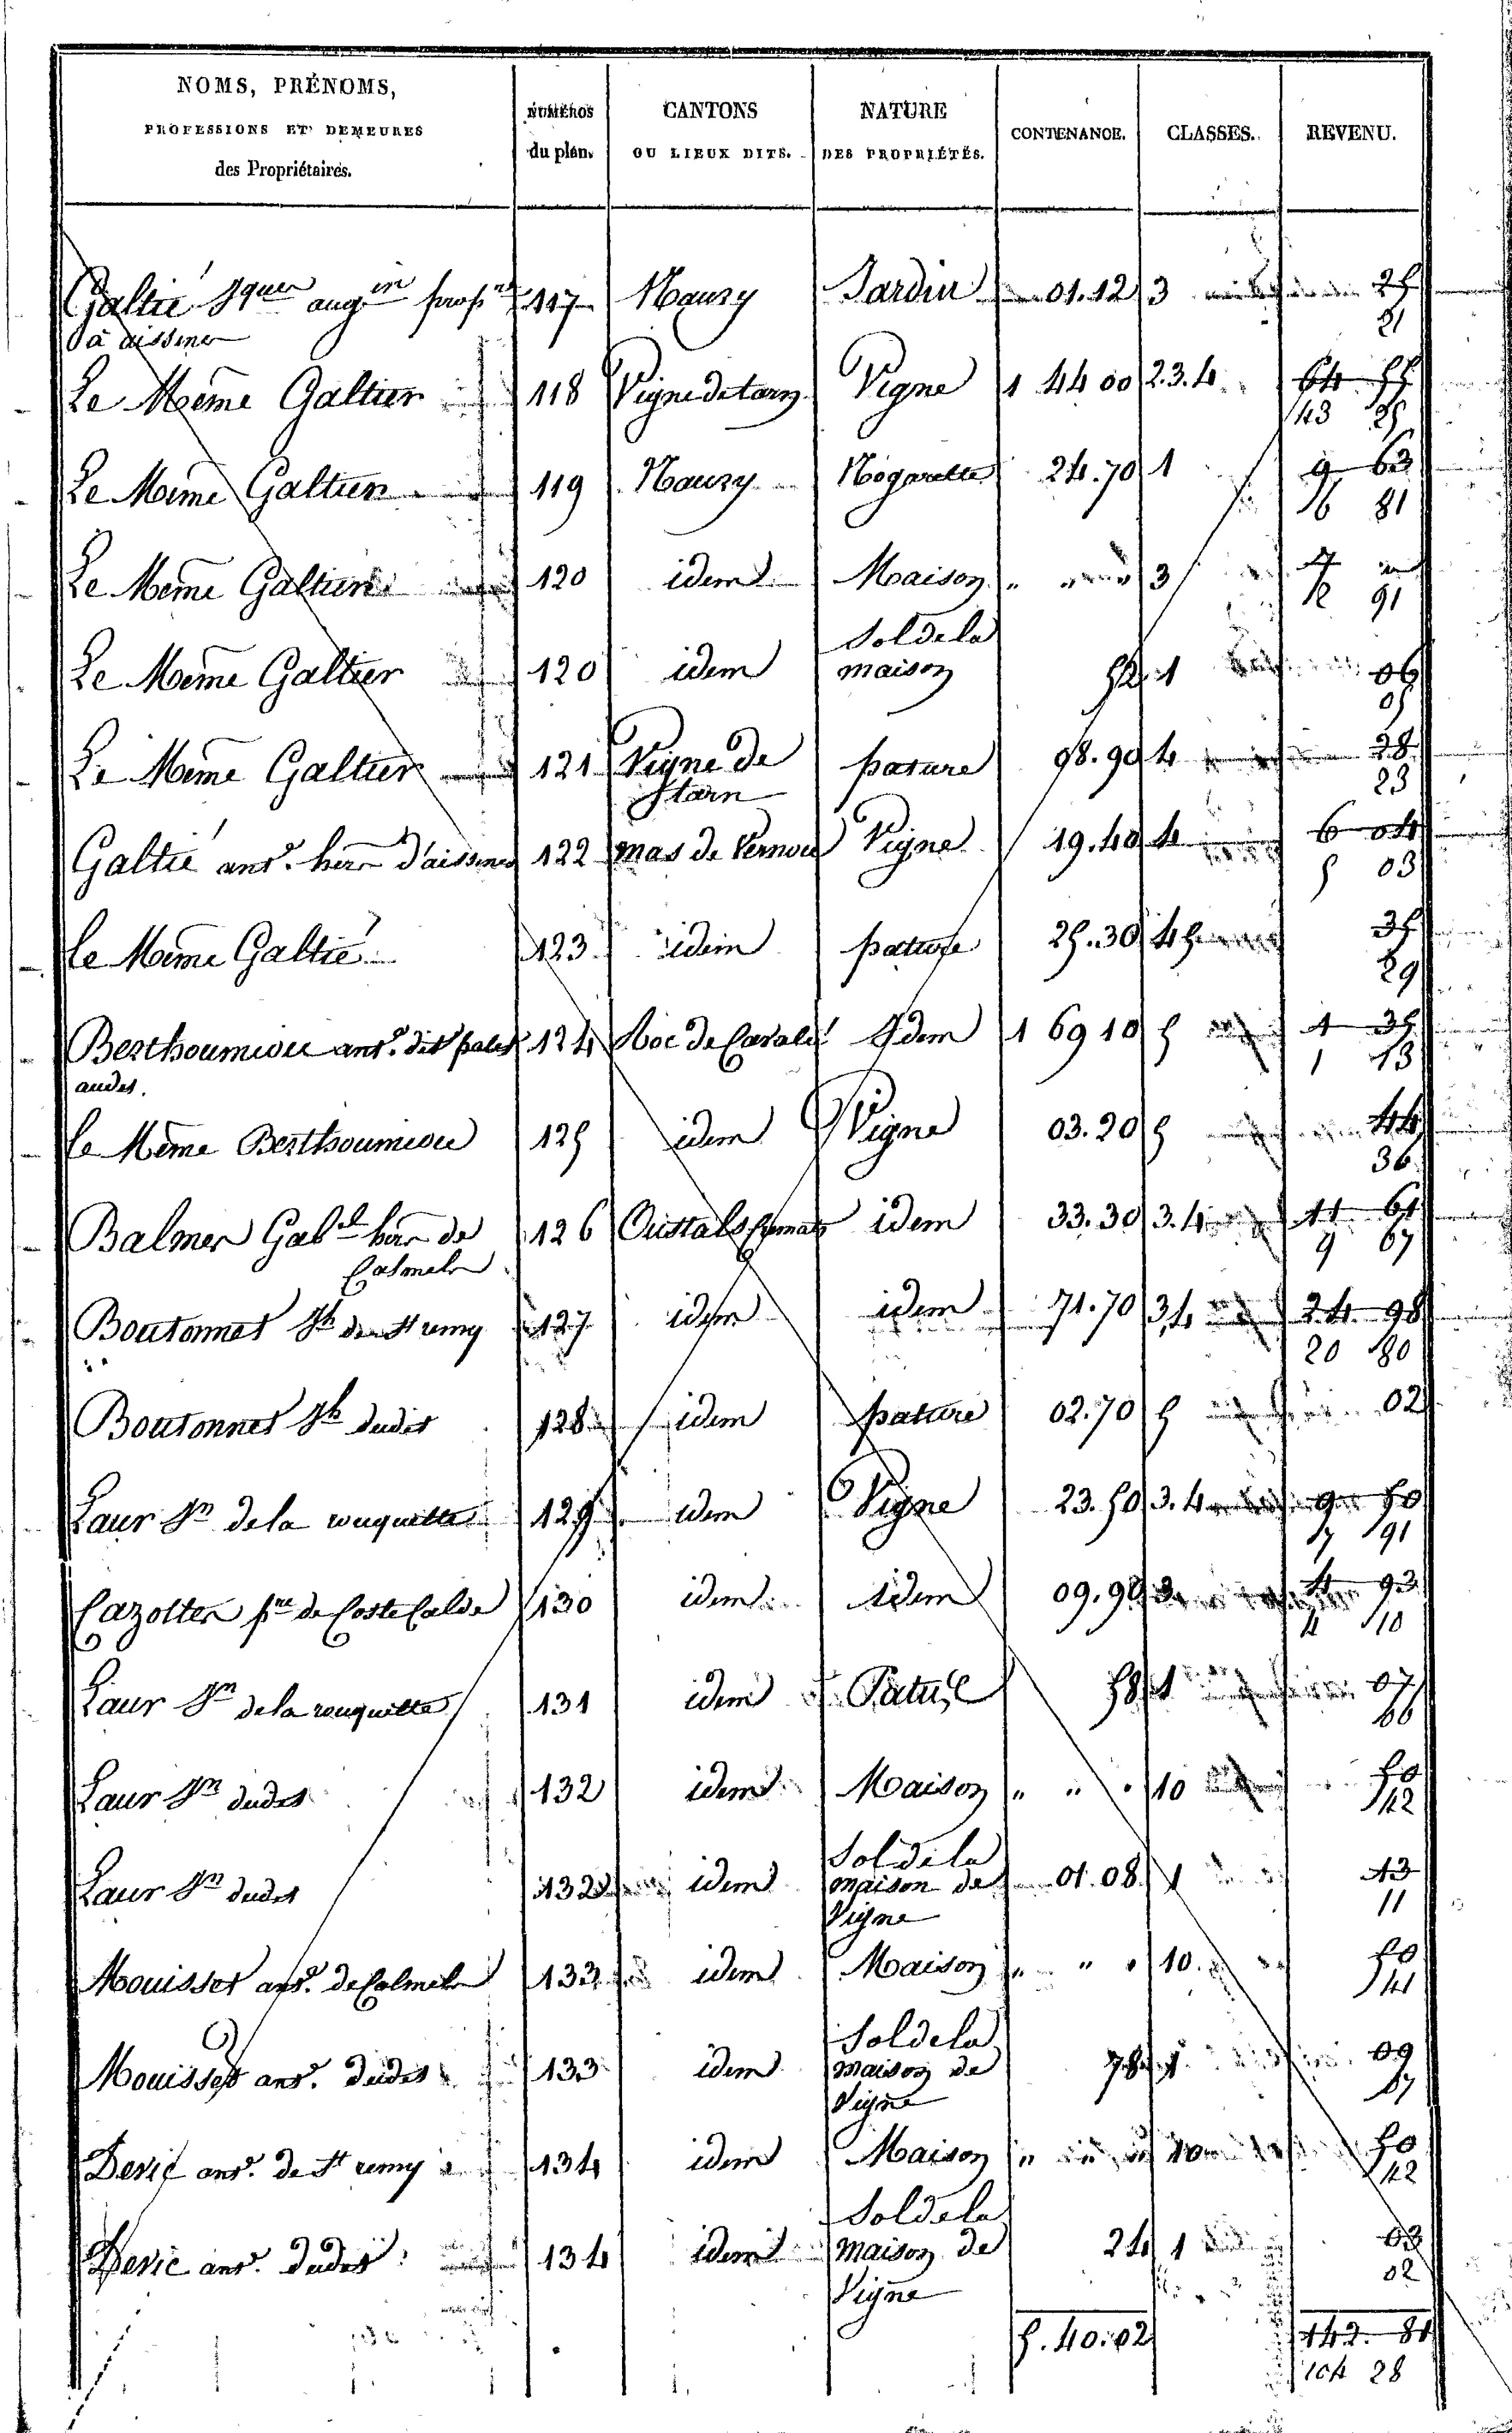 NOMS, PRÉNOMS,
PROFESSIONS ET DEMEURES
des Propriétaires.
NUMÉROS
du plan.
CANTONS
OU LIEUX DITS.
NATURE
DES PROPRIÉTÉS.
CONTENANCE.
CLASSES.
REVENU.
Galtié Jques augin prop 117 Mauzy Jardin 01.12 3 25
à aissene 21
Le Meme Galtier 118 Vigne de tarn Vigne 1 44 00 2.3.4 64 55
43 25
Le Meme Galtier 119 Mauzy Nogarette 24.70 1 9 63
81
Le Meme Galtier 120 idem Maison „ „ „ 3
91
Le Meme Galtier 120 idem Sol de la
maison 52 1 06
05
Le Meme Galtier 121 Vigne de
tarn pature 98.90 4 28
23
Galtié ant. d'aissenes 122 mas de Vernou Vigne 19.40 4 6 04
5 03
le Meme Galtié 123 idem pature 25.30 4 5 35
29
Berthoumieu ant. dit 124 Roc de Idem 1 69 10 5 1 35
1 13
le Meme Berthoumieu 125 idem Vigne 03.20 5 44
36
Balmer Gabel de
Calmels 126 idem 33.30 3.4 11 61
9 67
Boutonnet Jh de St remy 127 idem idem 71.70 3.4 24 98
20 80
Boutonnet Jh dudit 128 idem pature 02.70 5 02
Laur Jn de la rouquette 129 idem Vigne 23.50 3.4 9 50
7 91
Cazottes pre de Coste Calde 130 idem idem 09.90 3 4 93
4 10
Laur Jn de la rouquette 131 idem Patus 58 1 07
06
Laur Jn dudit 132 idem Maison „ „ „ 10 50
42
Laur Jn dudit 132 idem Sol de la
maison de
Vigne 01.08 1 13
11
Mouisset ant. de Calmels 133 idem Maison „ „ „ 10 50
41
Mouisset ant. dudit 133 idem Sol de la
maison de
Vigne 78 1 09
07
Deric ant. de St remy 134 idem Maison „ „ „ 10 50
42
Deric ant. dudit 134 idem Sol de la
maison de
Vigne 24 1 03
02
5.40.02 142 81
104 28